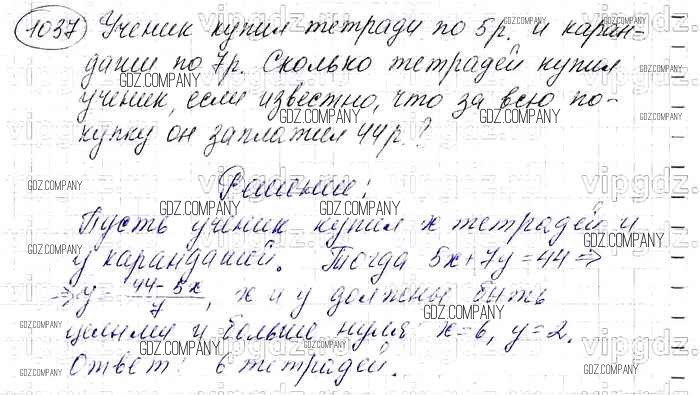 1037 Ученик купил тетради по 5р. и каран-
даши по 7р. Сколько тетрадей купил
ученик, если известно, что за всю по-
купку он заплатил 44р?
Решение:
Пусть ученик купил x тетрадей и
y карандашей. Тогда 5x+7y=44 ⇒
⇒ y = (44-5x)/7, x и y должны быть
целыми и больше нуля: x=6, y=2.
Ответ: 6 тетрадей.
GDZ.COMPANY
vipgdz.ru